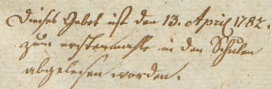 Dieses Gebot ist den 13. April 1782.
zum erstenmahle in den Schulen
abgelesen worden.